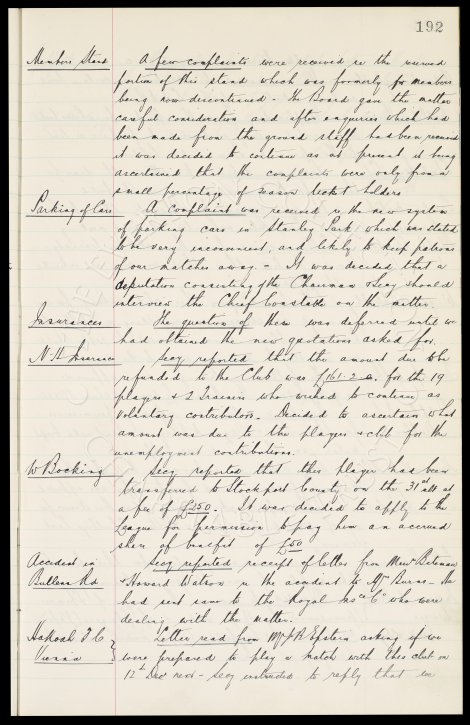 192
Members Stand A few complaints were received re the reserved
portion of this stand which was formerly for members
being now discontinued - The Board gave the matter
careful consideration and after enquiries which had
been made from the ground staff had been received
it was decided to continue as at present it being
ascertained that the complaints were only from a
small percentage of season ticket holders
Parking of Cars A complaint was received re the new system
of parking cars in Stanley Park, which was stated
to be very inconvenient, and likely to keep patrons
of our matches away. - It was decided that a
deputation consisting of the Chairman & Secy should
interview the Chief Constable on the matter.
Insurances The question of these was deferred until we
had obtained the new quotations asked for.
N.H. Insurance Secy reported that the amount due to be
refunded to the Club was £161-2-0. for the 19
players & 2 Trainers who wished to continue as
voluntary contributors. Decided to ascertain what
amount was due to the players & club for the
unemployment contributions.
W Bocking Secy reported that this player had been
transferred to Stockport County on the 31st ult at
a fee of £250. It was decided to apply to the
League for permission to pay him an accrued
share of benefit of £50
Accident in Secy reported receipt of letter from Messrs Bateman
Bullens Rd & Howard Watson re the accident to Mrs Burns - He
had sent same to the Royal Insce Co who were
dealing with the matter.
Hakoah F C Letter read from Mr J R Epstein asking if we
Vienna were prepared to play a match with this club on
12th Dec next - Secy instructed to reply that we